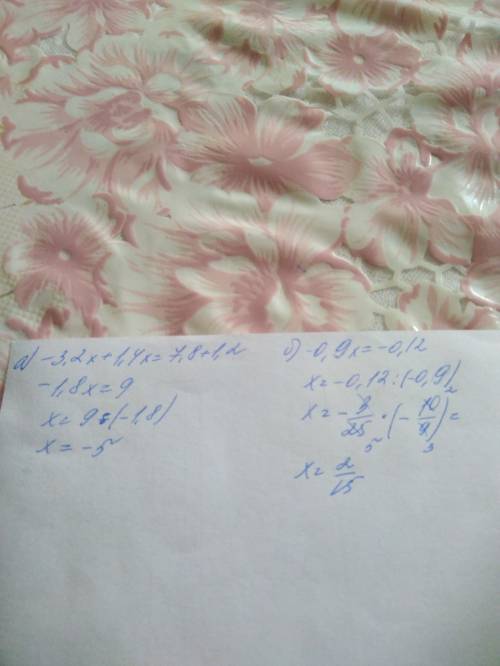 а) -3,2x+1,4x=7,8+1,2
-1,8x=9
x=9:(-1,8)
x=-5
б) -0,9x=-0,12
x=-0,12:(-0,9)
x=-3/25·(-10/9)=
x=2/15